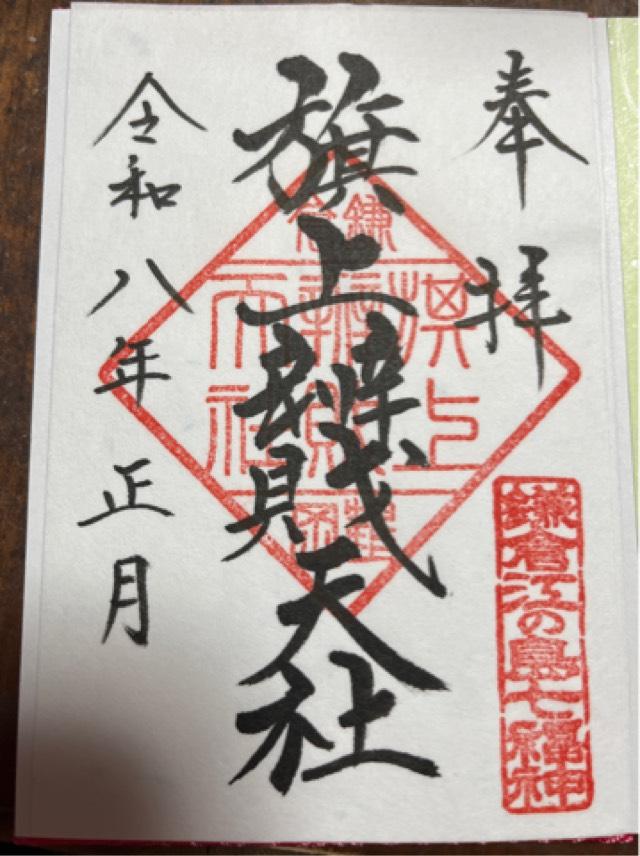 奉拝
鎌倉江の島七福神
旗上辨財天社
鎌倉
旗上
辨財
天社
令和八年正月